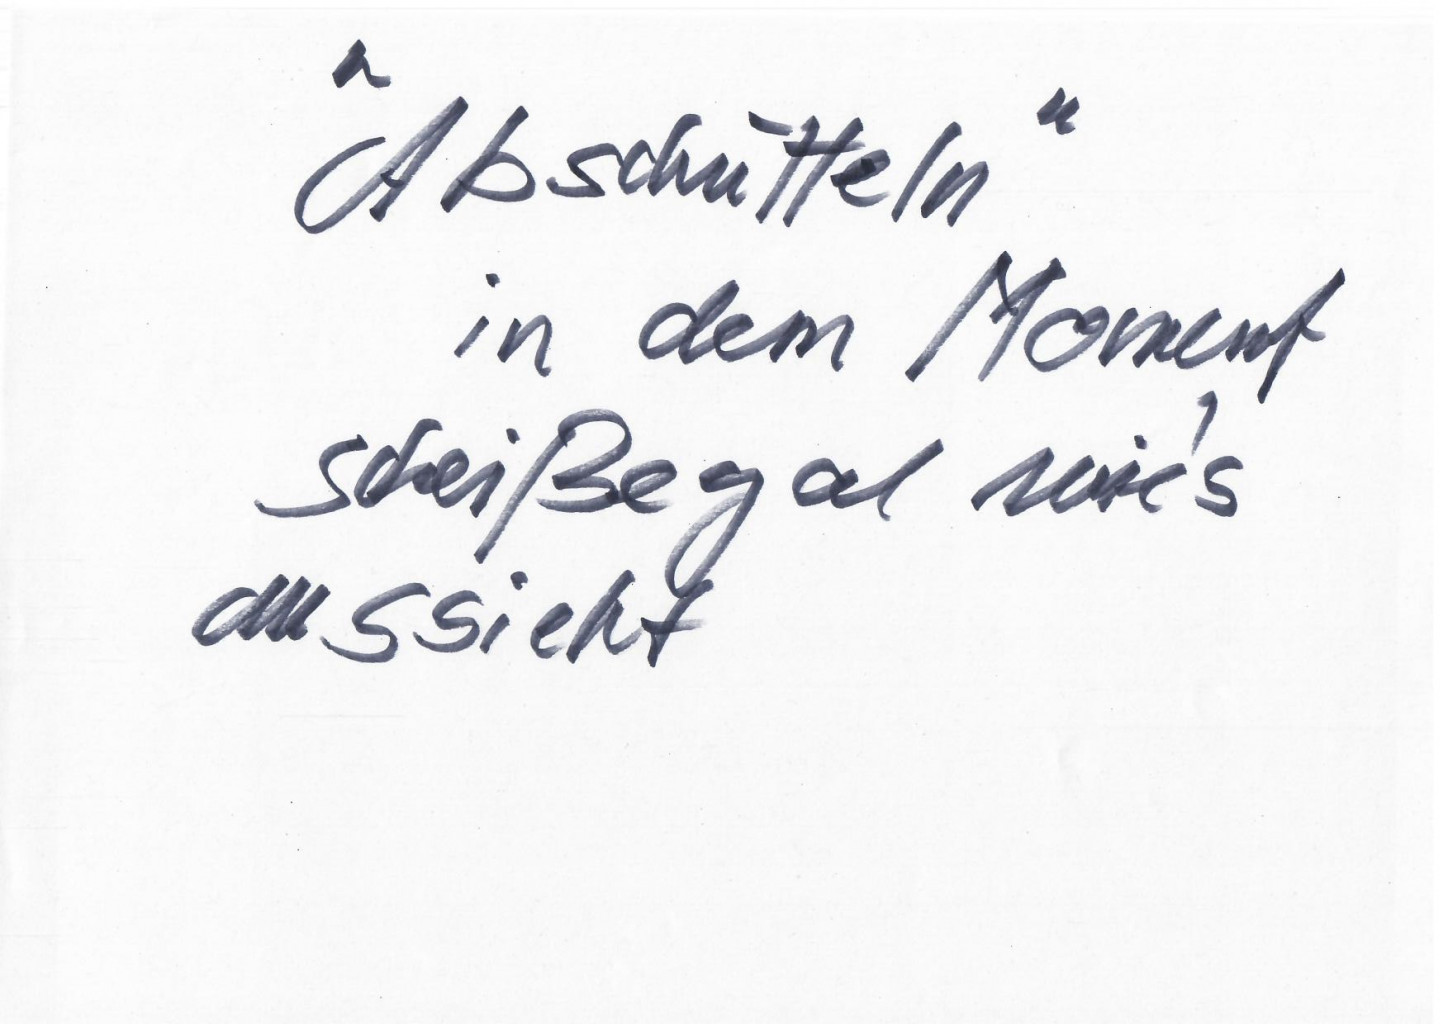 "Abschütteln"
in dem Moment
scheißegal wie's
aussieht